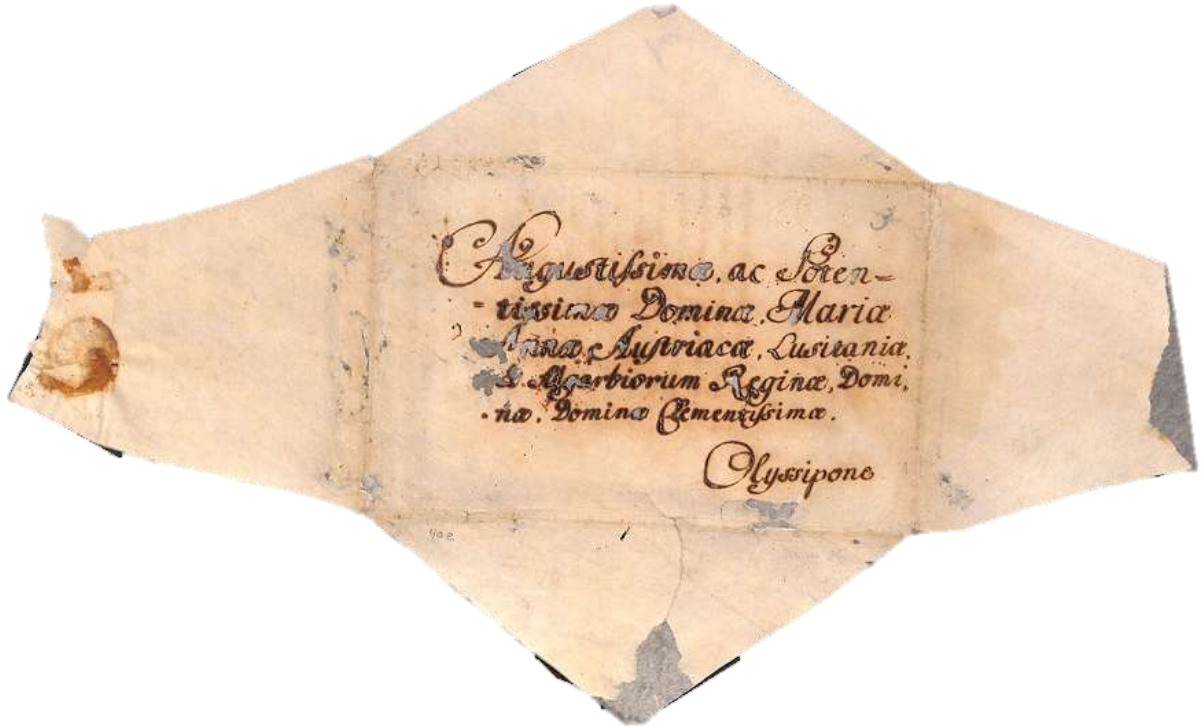 Augustissimæ, ac Poten=
=tissimæ Dominæ, Mariæ
Annæ Austriacæ, Lusitaniæ,
& Algarbiorum Reginæ, Domi,
næ, Dominæ Clementissimæ.
Olyssipone